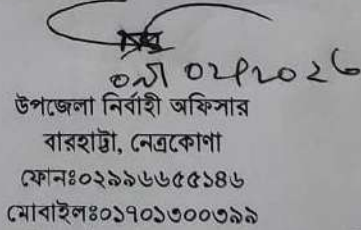 উপজেলা নির্বাহী অফিসার
বারহাট্টা, নেত্রকোণা
ফোনঃ০২৯৯৬৬৫৫১৪৬
মোবাইলঃ০১৭০১৩০০৩৯৯